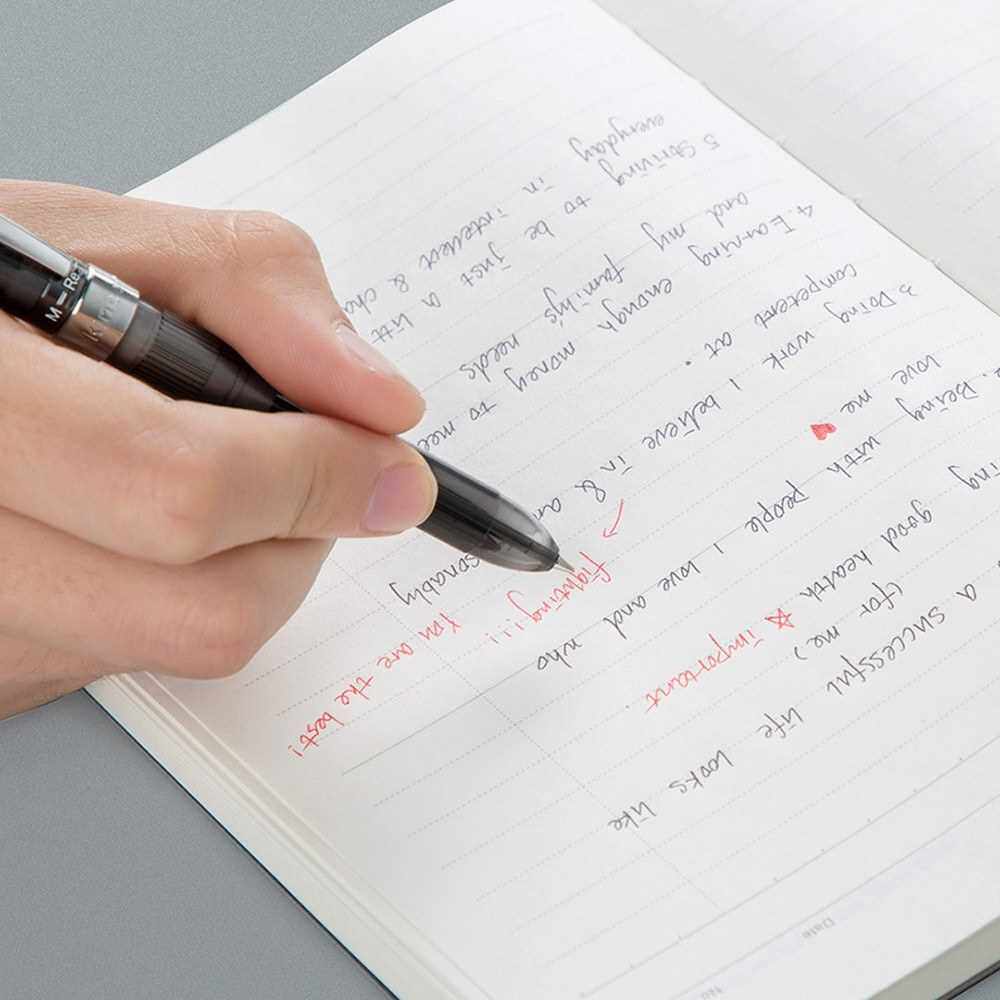 No
Date
a successful life looks like
(for me)
good health ☆ important
2. Being with people I love and who
love me ♥
fighting!!!
3. Doing work I believe in &
competent at.
You are the best!
4. Earning enough money to mee
and my family's needs sonably
5 Striving to be just a litt
in intellect & cha
everyday
M-Re